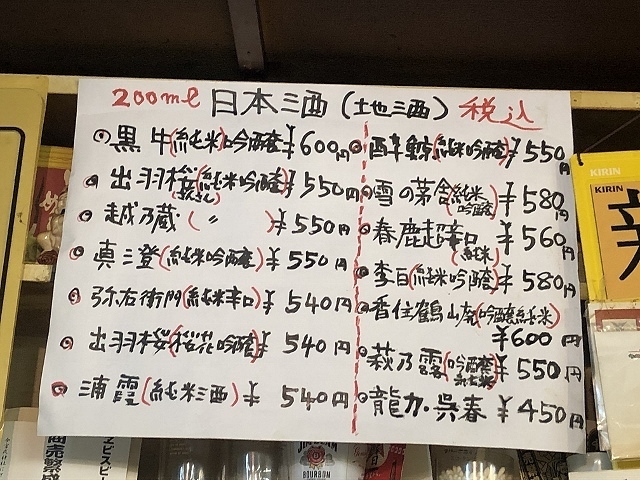 200ml 日本酒(地酒) 税込
黒牛(純米吟醸)¥600円
出羽桜(純米吟醸)¥550円
越乃蔵(〃)¥550円
真澄(純米吟醸)¥550円
弥右衛門(純米辛口)¥540円
出羽桜(桜花吟醸)¥540円
浦霞(純米酒)¥540円
酔鯨(純米吟醸)¥550円
雪の茅舎(純米吟醸)¥580円
春鹿超辛口(純米)¥560円
李白(純米吟醸)¥580円
香住鶴山廃(吟醸純米)
¥600円
萩乃露(吟醸純米)¥550円
龍力・呉春 ¥450円
KIRIN
KIRIN
商売繁盛
BOURBON